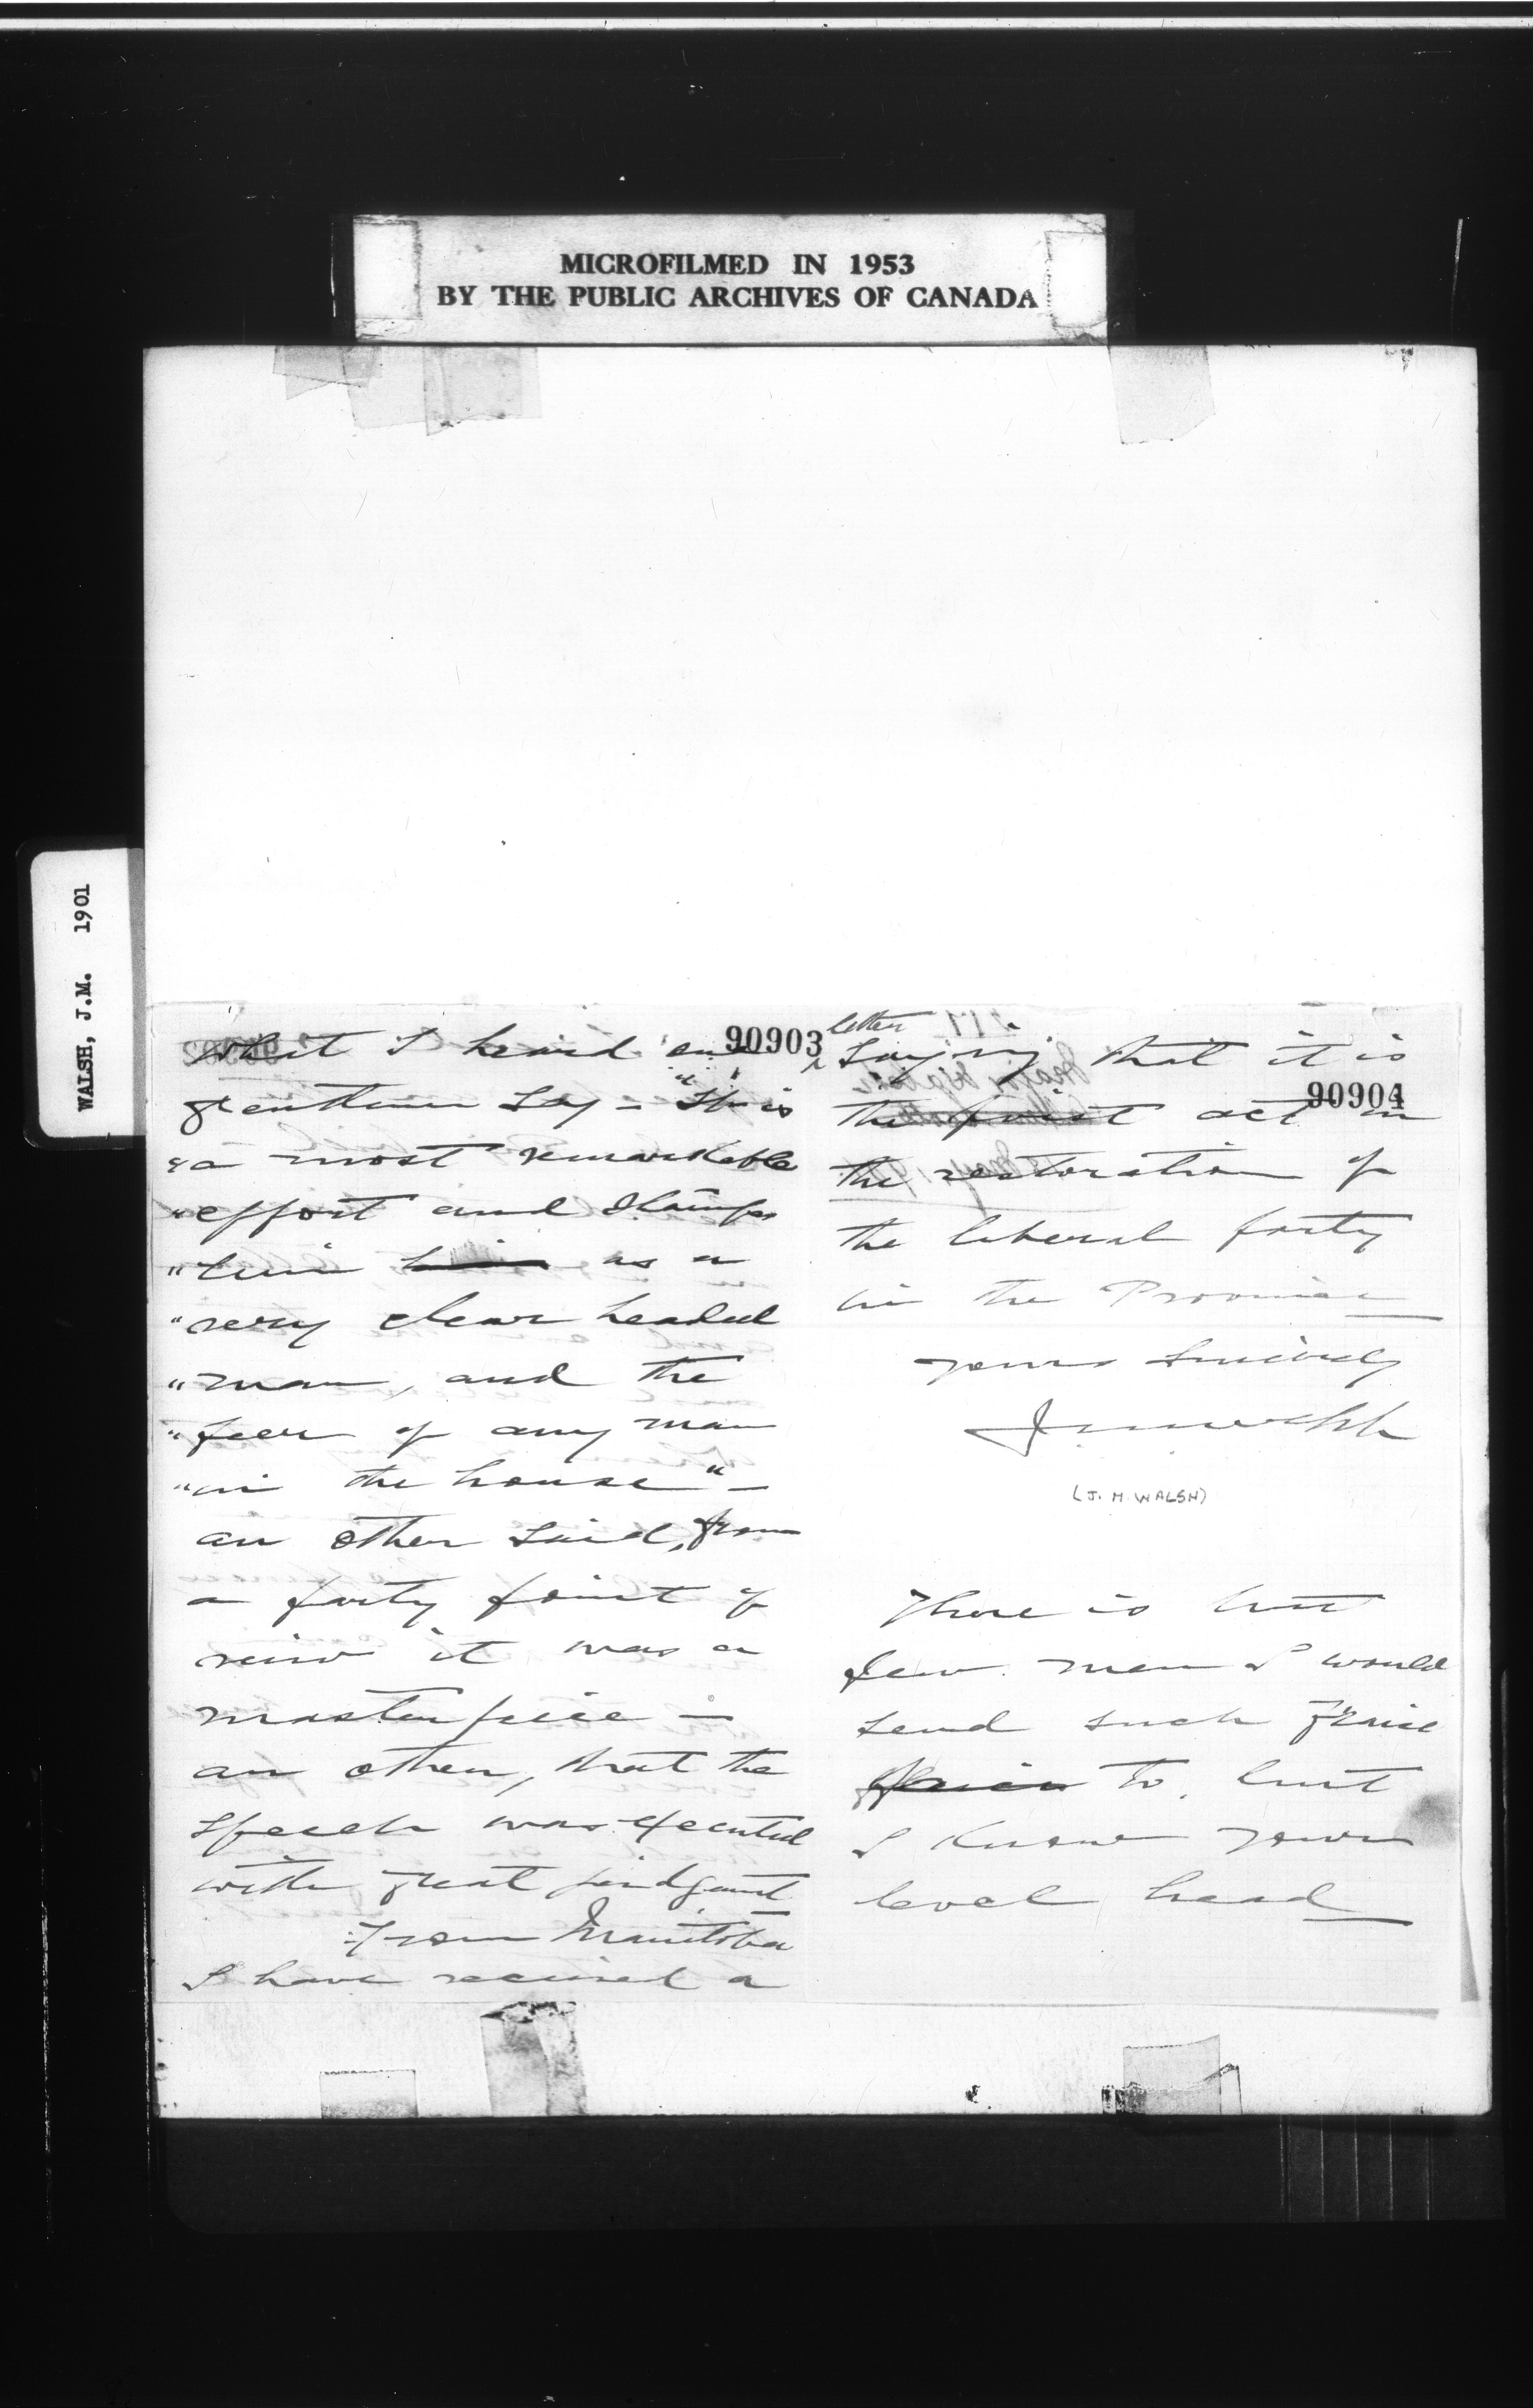 MICROFILMED IN 1953
BY THE PUBLIC ARCHIVES OF CANADA
WALSH, J.M. 1901
90903
What I heard one
gentleman say – "It is
"a most remarkable
"effort and stamps
"him him as a
"very clear headed
"man, and the
"peer of any man
"in the house" –
an other said, from
a party point of
view it was a
masterpiece –
an other, that the
speech was executed
with great judgment
From Manitoba
I have received a
letter
90904
saying that it is
the first act in
the restoration of
the liberal party
in the Province
yours sincerely
J M Walsh
(J. M. WALSH)
There is but
few men I would
send such praise
to, but
I know your
level head